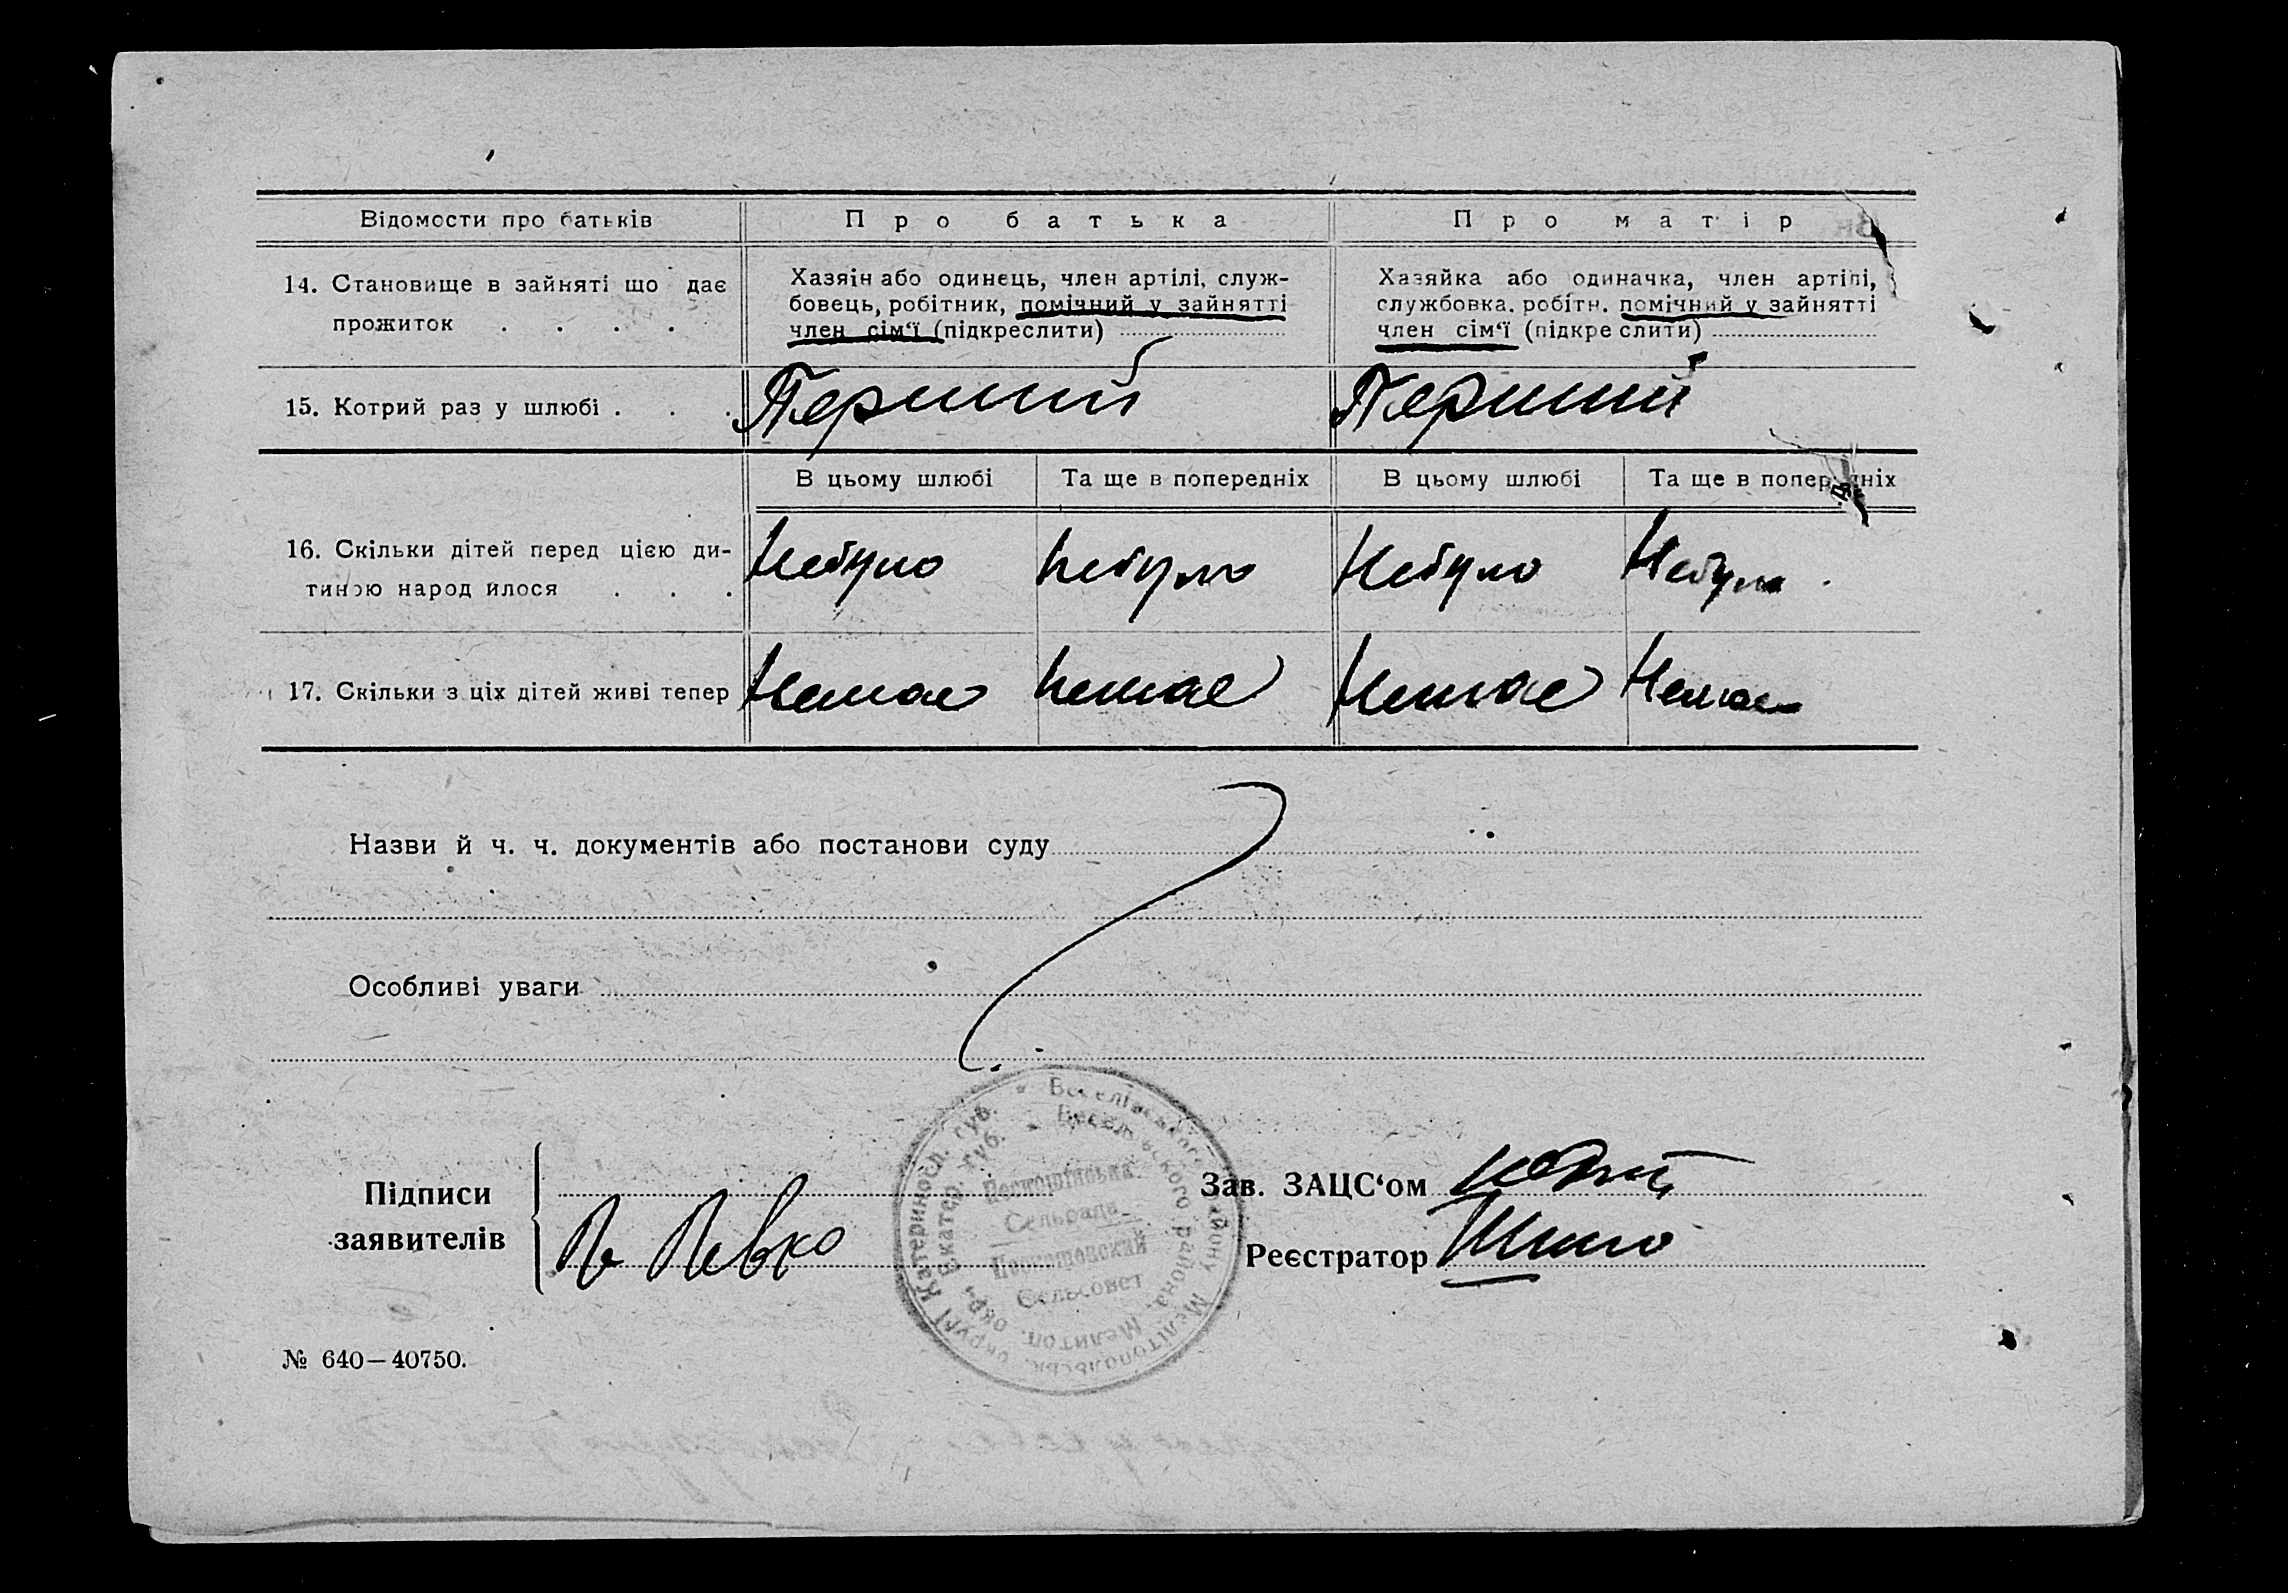 Відомости про батьків Про батька Про матір
14. Становище в зайняті що дає
прожиток . . . .
Хазяін або одинець, член артілі, служ-
бовець, робітник, помічний у зайнятті
член сім‘ї (підкреслити)
Хазяйка або одиначка, член артілі,
службовка. робітн. помічний у зайнятті
член сім‘ї (підкре слити)
15. Котрий раз у шлюбі . . . Перший Перший
В цьому шлюбі Та ще в попередніх В цьому шлюбі Та ще в попередніх
16. Скільки дітей перед цією ди-
тиною народ илося . . .
Небуло Небуло Небуло Небуло
17. Скільки з ціх дітей живі тепер Немає Немає Немає Немає
Назви й ч. ч. документів або постанови суду
Особливі уваги
Підписи
заявителів
Певко
Веселівського району Мелітопольськ. округі Катериносл. губ.
Весельвского района. Мелитоп. окр. Екатер. Губ.
Сельрада
Сельсовет
Зав. ЗАЦС‘ом
Реєстратор
№ 640—40750.